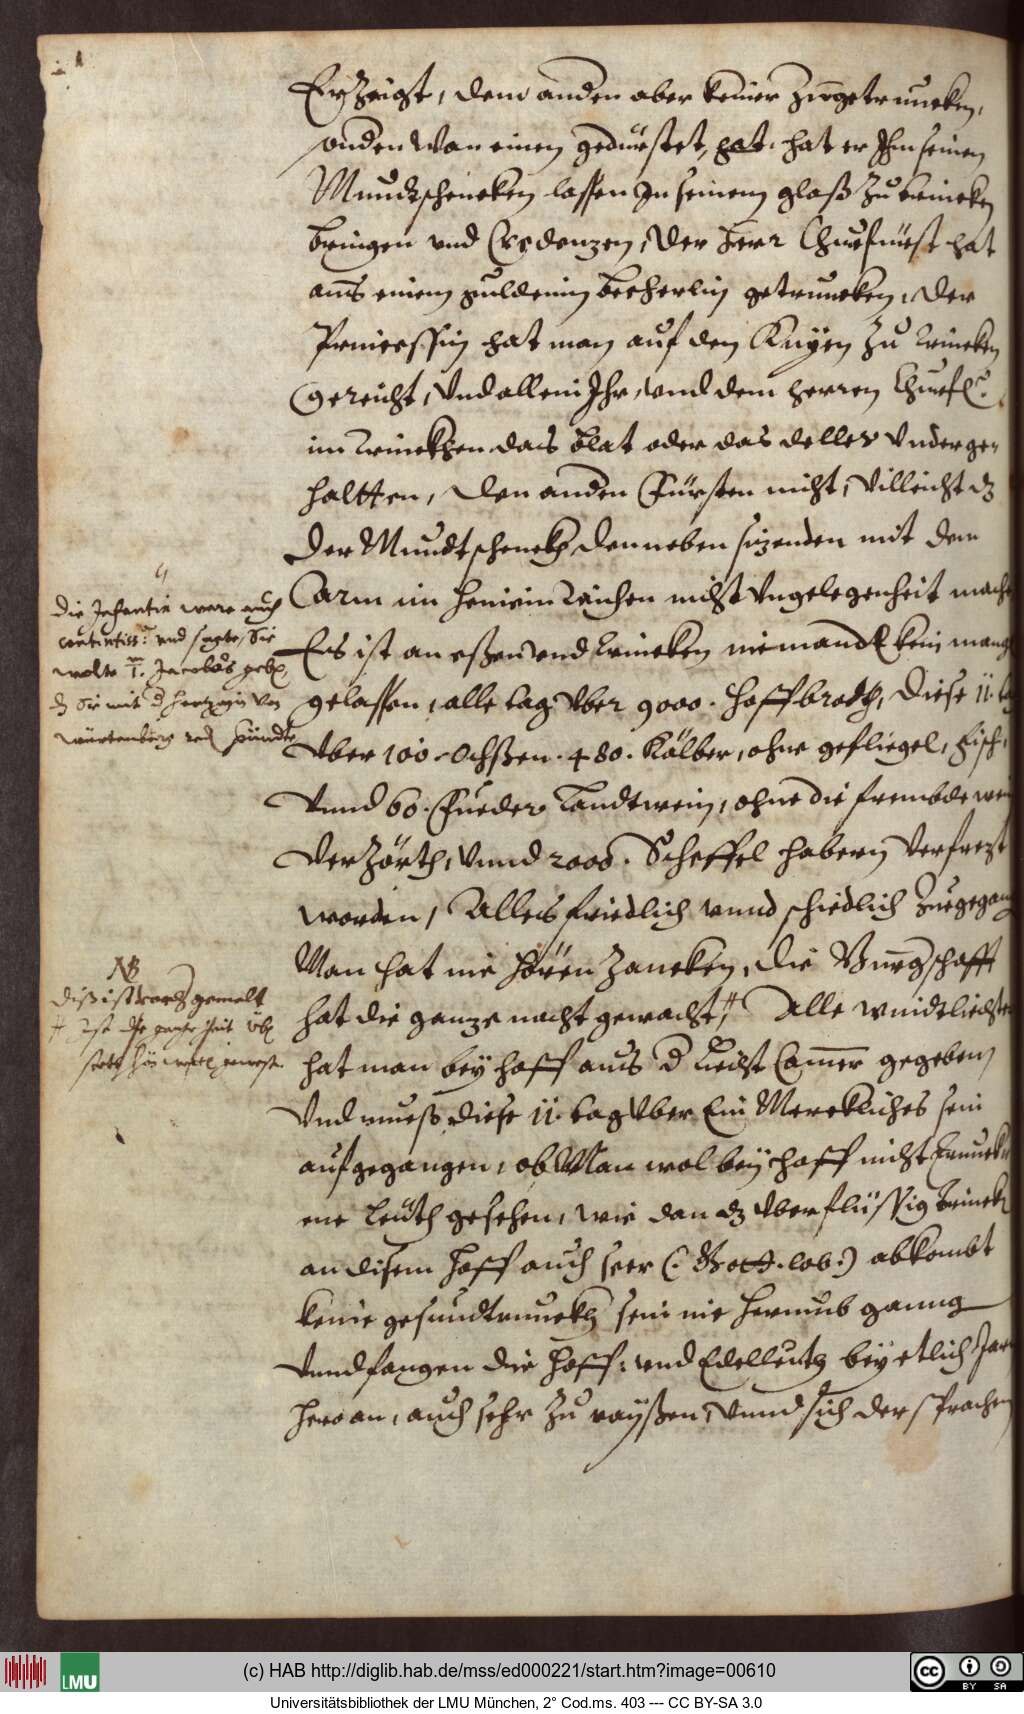 Erzaigt, dem anden aber keiner zugetruncken,
sonden Wan einen gedürstet, hat. hat er Ihm seinen
Mundtschencken lassen In seinem glaß zu trincken
bringen und Credenzen, Der Herr Churfürst hat
auß einem guldenin becherlin getruncken, Der
Princessin hat man auf den Knyen zu trincken
Gereicht, Und allein Ihr, und dem herren Churfl:
im Trinckhen das blat oder das deller Underge-
haltten, den anden Fürsten nicht, Villeicht dz
der Mundtschenckh den neben sizenden mit dem
Arm im hinein Raichen nicht Ungelegenheit mache
Es ist an eßen und trincken niemandt kein mang
gelassen, alle tag Uber 9000. Hoffbroth, diese 11. ta
Uber 100. Ochßen. 480. Kälber, ohne gefliegel, Fisch,
Unnd 60. Fueder Landtwein, ohne die frembde wein
Verzörth, Unnd 2000. Scheffel habern Verfrezt
worden, Alles friedlich unnd schiedlich zuegegang
Man hat nie hören zancken, die Burgschafft
hat die ganze nacht gewacht, # Alle windtliechter
hat man bey hoff aus d Liecht Camer gegeben
Und mueß diese 11. tag Uber Ein Merckliches sein
aufgegangen, ob Man wol bey hoff nicht truncke
ne Leuth gesehen, wie dan dz Uberflüssig trincke
an disem hoff auch seer (: Gott. lob:) abkombt
keine gesundtrunckh sein nie herumb ganng
Unnd fangen die Hoff: und Edelleuth bey etlich Jarn
hero an, auch sehr zu rayßen, Unnd sich der sprachen
4
die Infantin ware auch
contentiss: und sagte, Sie
wolte Jacobo geb,
dz Sie mit d hertzogin von
würtenberg red künndte
NB
diß ist vor gemelt
# Ist die ganze Zeit üb
(c) HAB http://diglib.hab.de/mss/ed000221/start.htm?image=00610
LMU
cc BY SA
Universitätsbibliothek der LMU München, 2° Cod.ms. 403 --- CC BY-SA 3.0